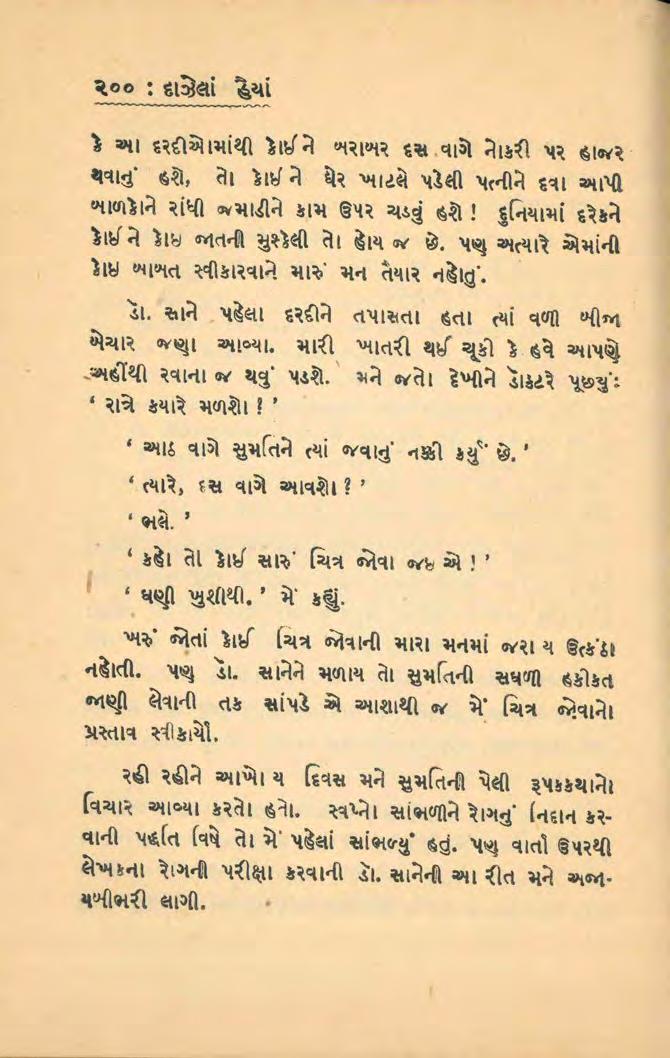 ૨૦૦ : દાઝેલાં હૈયાં
કે આ દરદીઓમાંથી કોઈને બરાબર દસ વાગે નોકરી પર હાજર
થવાનું હશે, તો કોઈને ઘેર ખાટલે પડેલી પત્નીને દવા આપી
બાળકોને રાંધી જમાડીને કામ ઉપર ચડવું હશે ! દુનિયામાં દરેકને
કોઈ ને કોઇ જાતની મુશ્કેલી તો હોય જ છે. પણ અત્યારે એમાંની
કોઇ બાબત સ્વીકારવાને મારું મન તૈયાર નહોતું.
ડૉ. સાને પહેલા દરદીને તપાસતા હતા ત્યાં વળી બીજા
બેચાર જણા આવ્યા. મારી ખાતરી થઈ ચૂકી કે હવે આપણે
અહીંથી રવાના જ થવું પડશે. મને જતો દેખીને ડૉક્ટરે પૂછયું:
‘ રાત્રે કયારે મળશો ! ’
‘ આઠ વાગે સુમતિને ત્યાં જવાનું નક્કી કર્યું છે. ’
‘ ત્યારે, દસ વાગે આવશો ? ’
‘ ભલે. ’
‘ કહો તો કોઈ સારું ચિત્ર જોવા જઇએ ! ’
‘ ઘણી ખુશીથી. ’ મેં કહ્યું.
ખરું જોતાં કોઈ ચિત્ર જોવાની મારા મનમાં જરા ય ઉત્કંઠા
નહોતી. પણ ડૉ. સાનેને મળાય તો સુમતિની સઘળી હકીકત
જાણી લેવાની તક સાંપડે એ આશાથી જ મેં ચિત્ર જોવાનો
પ્રસ્તાવ સ્વીકાર્યો.
રહી રહીને આખો ય દિવસ મને સુમતિની પેલી રૂપકકથાનો
વિચાર આવ્યા કરતો હતો. સ્વપ્નો સાંભળીને રોગનું નિદાન કર-
વાની પદ્ધતિ વિષે તો મેં પહેલાં સાંભળ્યું હતું. પણ વાર્તા ઉપરથી
લેખકના રોગની પરીક્ષા કરવાની ડૉ. સાનેની આ રીત મને અજા-
યબીભરી લાગી.